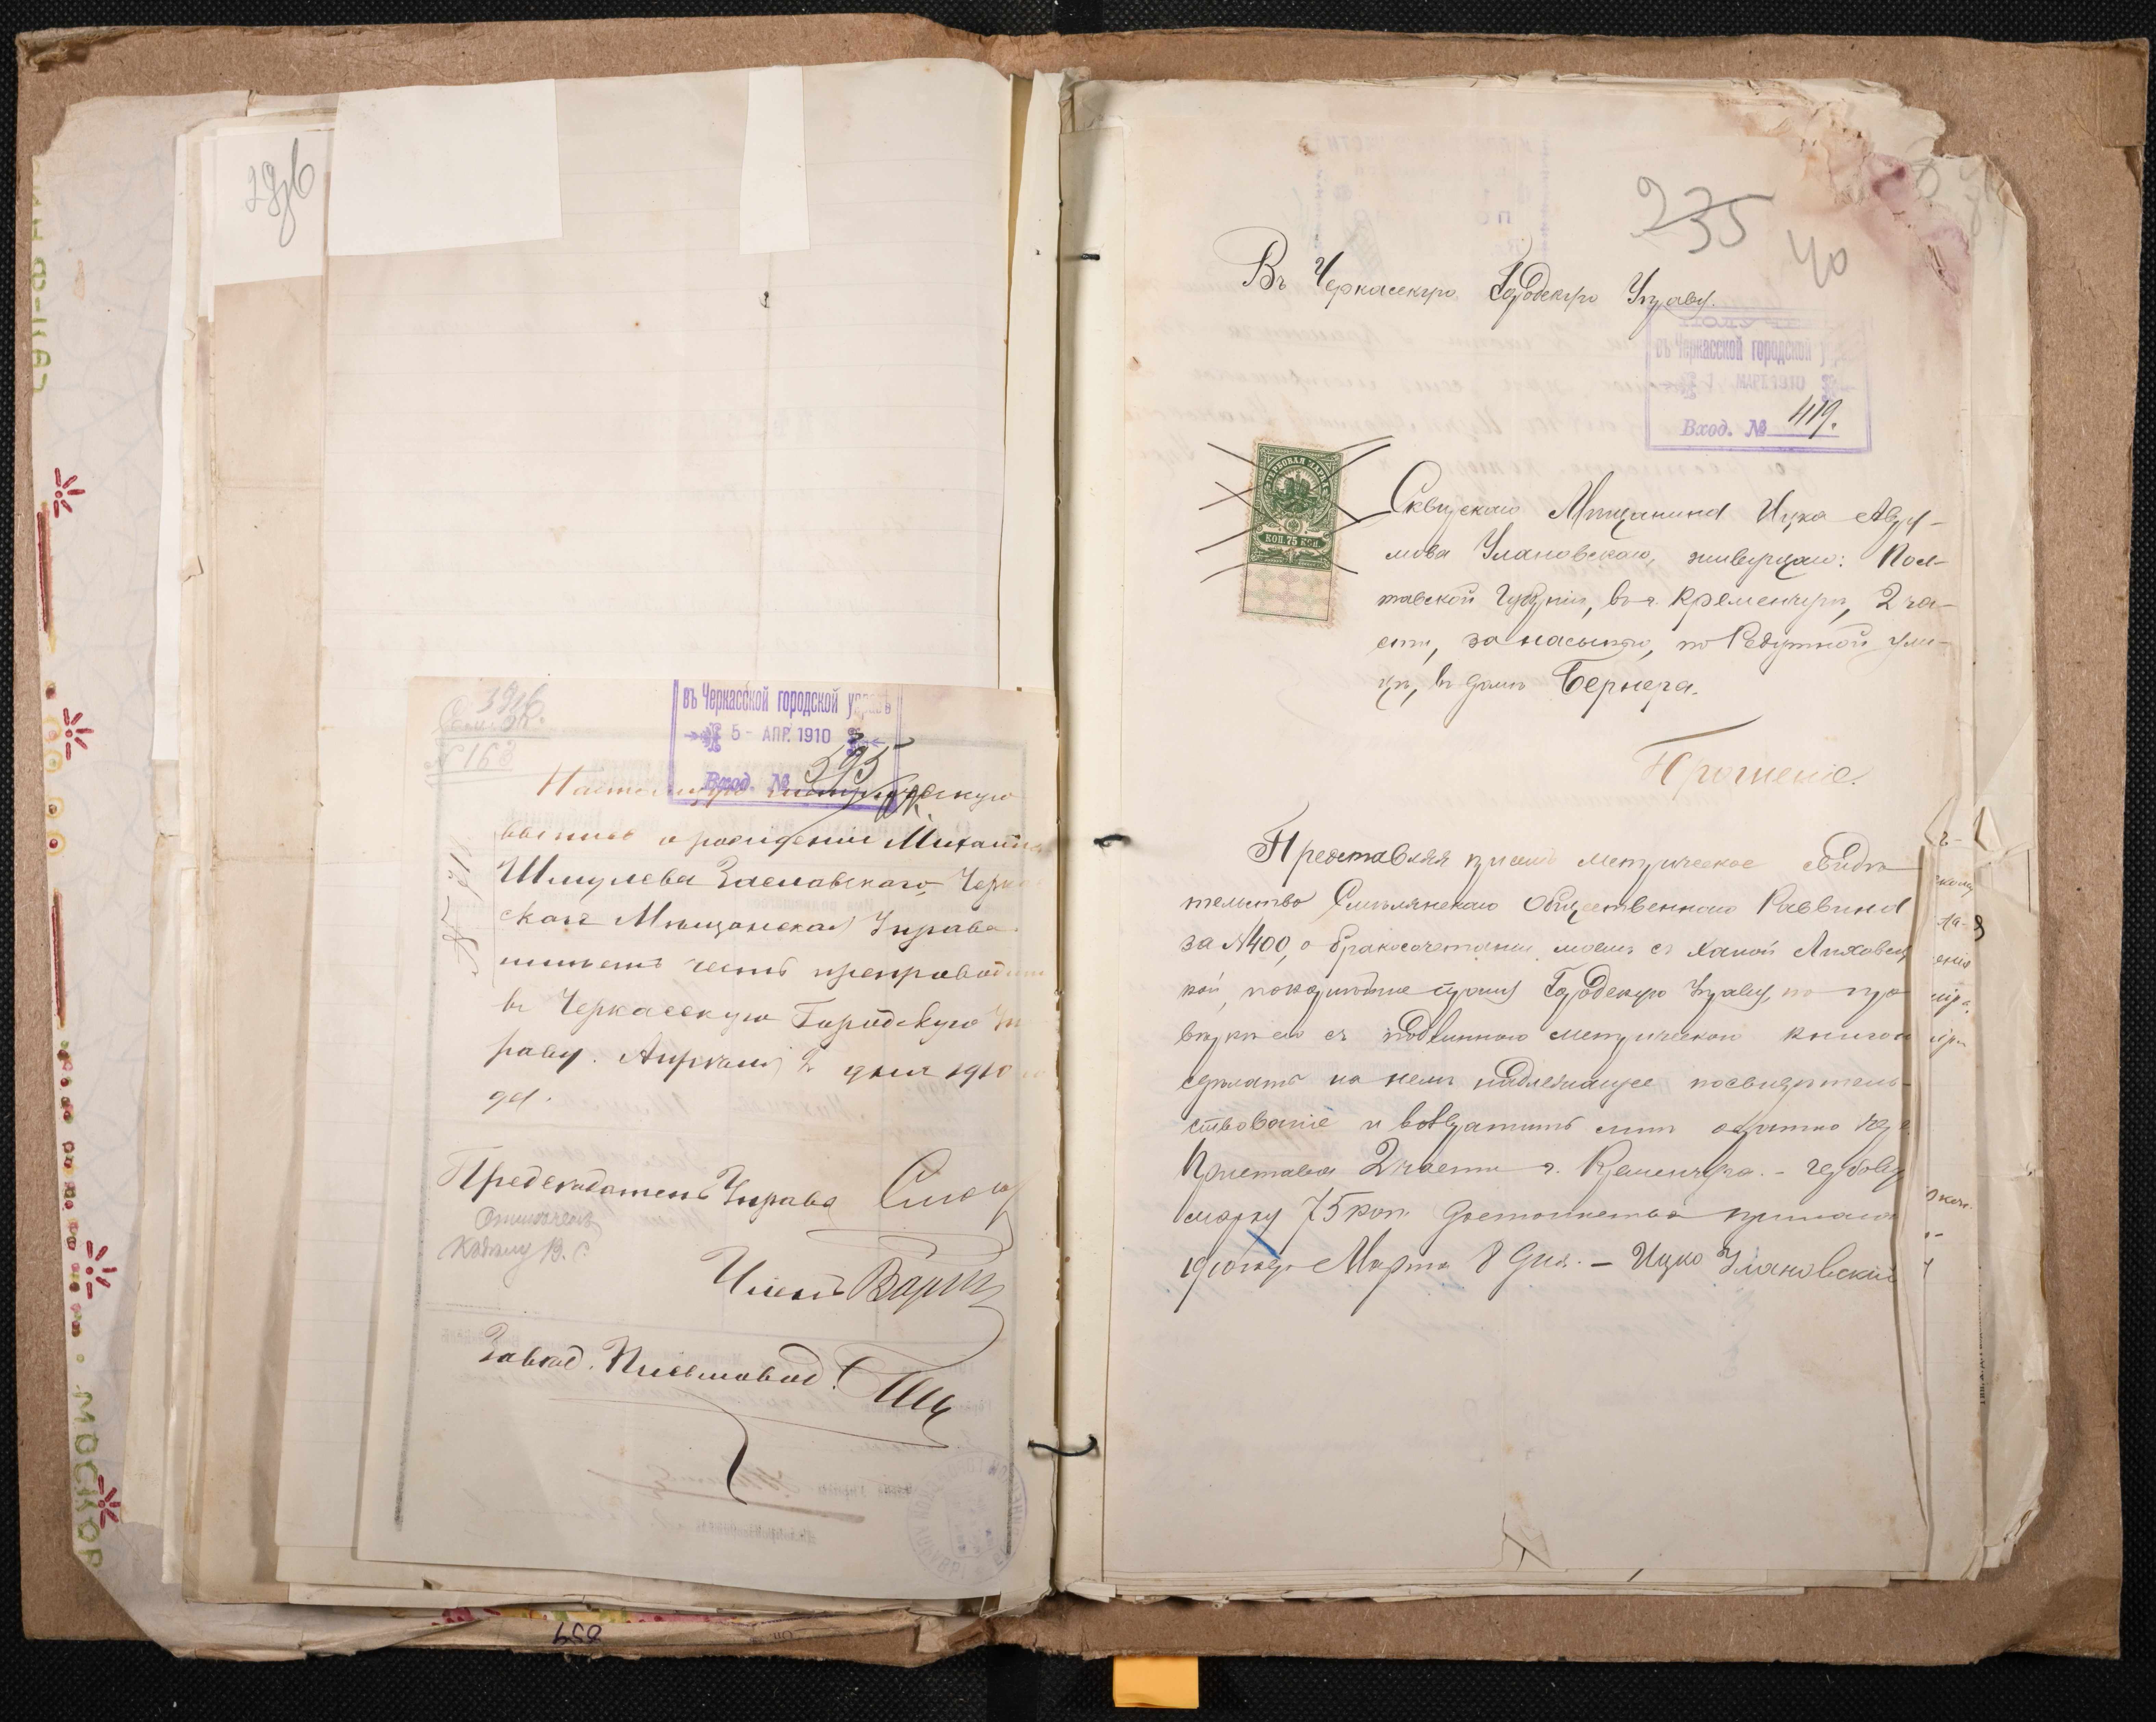 въ Черкасской городской управѣ
5 - АПР. 1910
Вход. № 395
№ 163
Настоящую метрическую
выпись о рождении Михаила
Шмулева Заславскаго Черкас-
ская Мѣщанская Управа
имѣетъ честь препроводить
въ Черкасскую Городскую Уп
раву. Апрѣля 2 дня 1910 го
да.
Предсѣдатель Управы
Членъ
Завѣд. Письмовод.
МОСКОВ
659
235
40
Въ Черкасскую Городскую Управу.
ПОЛУЧЕНО
въ Черкасской городской упр
МАРТ 1910
Вход. № 419.
ГЕРБОВАЯ МАРКА
КОП. 75 КОП.
Сквирскаго Мѣщанина Ицка Авру-
мова Улановскаго, живущаго: Пол-
тавской Губерніи, въ г. Кременчугѣ, 2 ча-
сти, за насыпью, по Редутной ули-
цѣ, въ домѣ Бернера.
Прошеніе.
Представляя при семъ метрическое свидѣ
тельство Смѣлянскаго Общественнаго Раввина
за №400, о бракосочетаніи моемъ съ Ханой Ляховец
кой, покорнѣйше прошу Городскую Управу, по про
вѣркѣ его съ подлинною метрическою книгою
сдѣлать на немъ надлежащее посвидѣтель-
ствованіе и возвратить мнѣ обратно чрез
Пристава 2 части г. Кременчуга. - гербовую
марку 75 коп. достоинства прилагаю
1910 года Марта 8 дня. - Ицко Улановскій